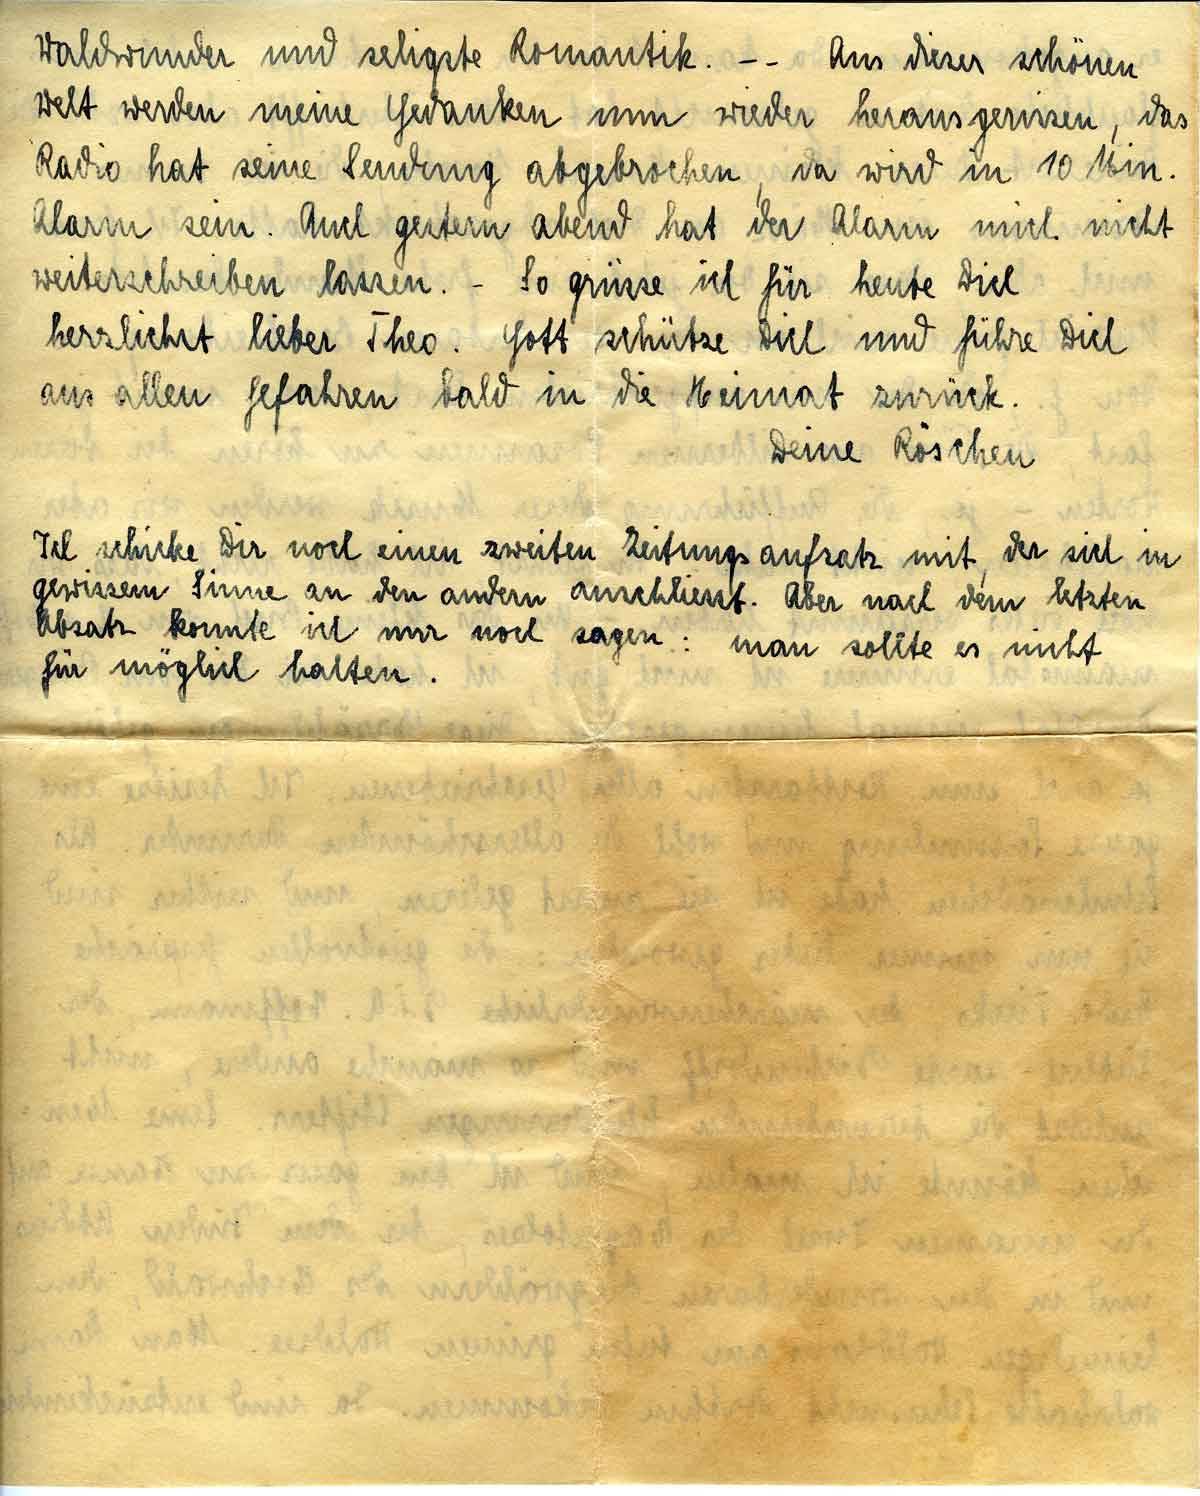 Waldwunder und seligste Romantik. -- Aus dieser schönen
Welt werden meine Gedanken nun wieder herausgerissen, das
Radio hat seine Sendung abgebrochen, da wird in 10 Min.
Alarm sein. Auch gestern abend hat der Alarm mich nicht
weiterschreiben lassen. - So grüsse ich für heute Dich
herzlichst lieber Theo. Gott schütze Dich und führe Dich
aus allen Gefahren bald in die Heimat zurück.
Deine Röschen
Ich schicke Dir noch einen zweiten Zeitungsaufsatz mit, der sich in
gewissem Sinne an den andern anschliesst. Aber nach dem letzten
Absatz konnte ich nur noch sagen: man sollte es nicht
für möglich halten.